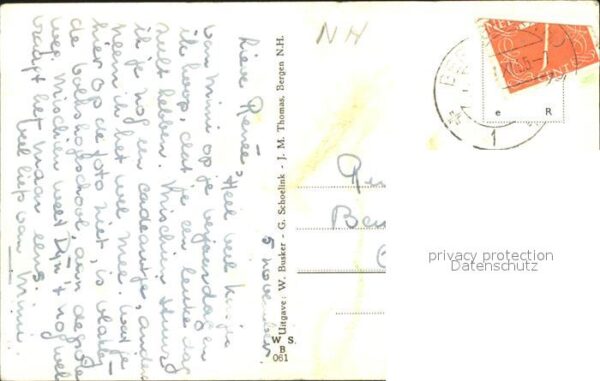 5 november
Lieve Renée, Heel veel kusjes
van Mimi op je verjaardag en
ik hoop, dat je een leuke dag
zult hebben. Misschien stuurt
ik je nog een cadeautje, anders
neem ik het wel mee. Wat je
hier op de foto ziet, is vlakbij
de Volkshogeschool, aan de grote
weg. Misschien weet Dym 't nog wel
vraagt het maar eens
Veel liefs van Mimi.
Uitgave: W. Busker - G. Schoelink - J. M. Thomas, Bergen N.H.
W S.
B
061
NH
Be
e R
1
CENT
privacy protection
Datenschutz